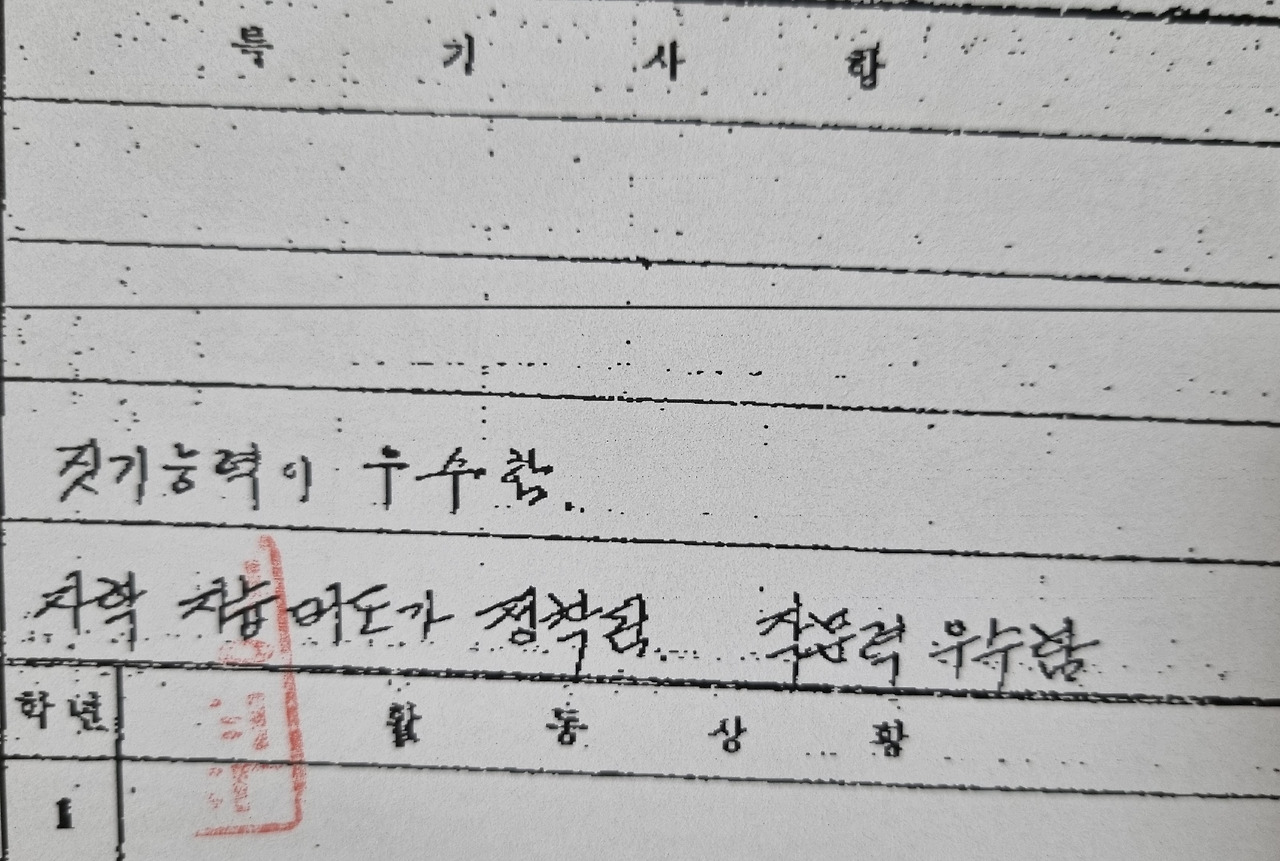 특 기 사 항
짓기능력이 우수함.
자학 자습 태도가 정착됨. 작문력 우수함
학년 활 동 상 황
1